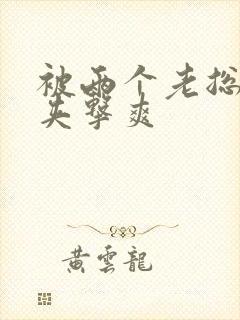 被两个老总
夹击爽
黄云龍